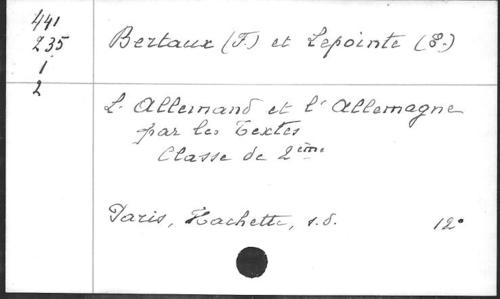 441
235
1
2
Bertaux (F.) et Lepointe (E.)
L'Allemand et l'Allemagne
par les Textes
Classe de 2ème
Paris, Hachette, s.d. 12°